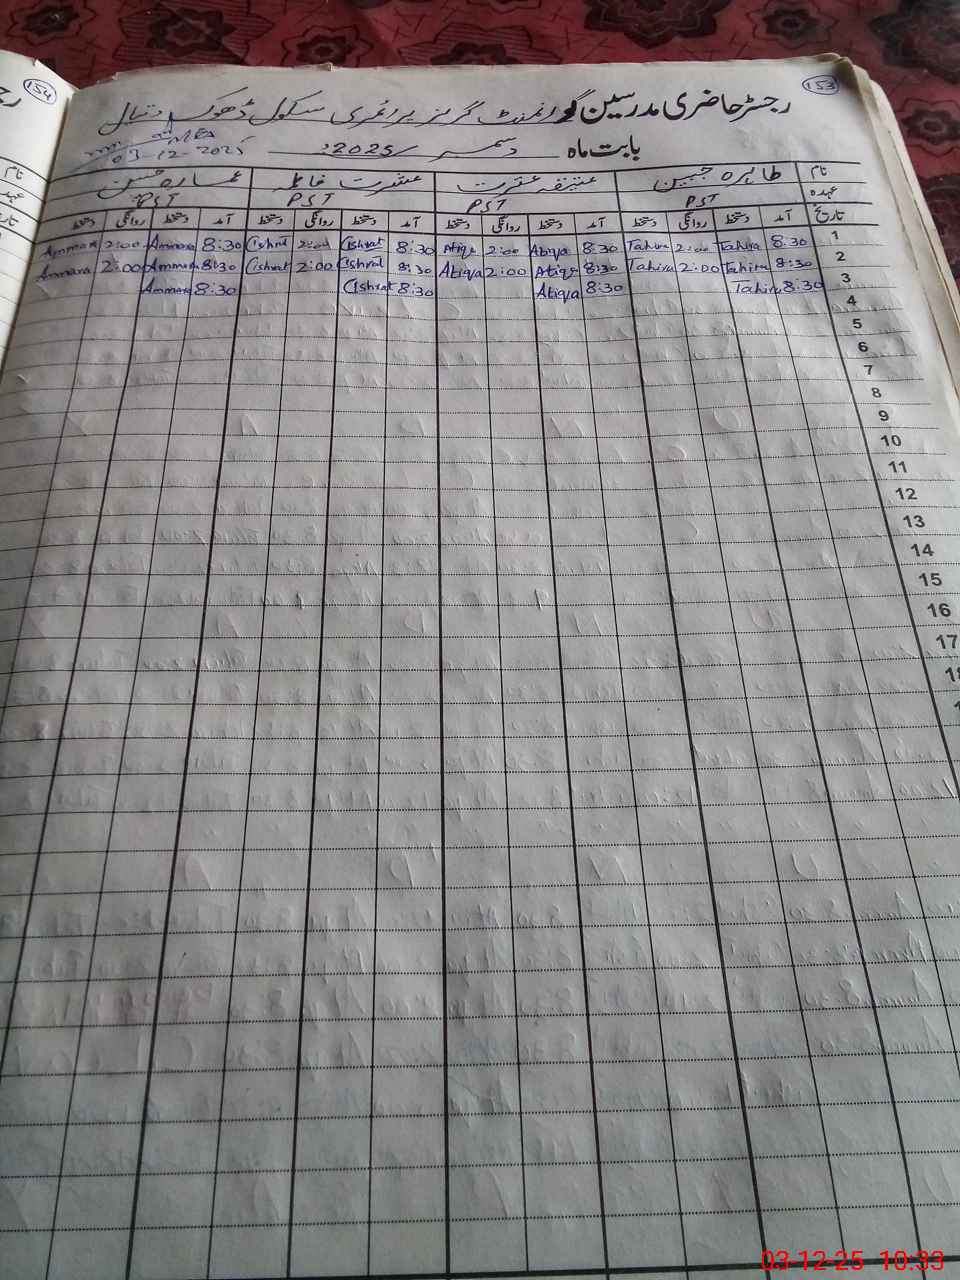 153
154
رجسٹر حاضری مدرسین گورنمنٹ گرلز پرائمری سکول ڈھوک دتیال
بابت ماہ دسمبر 2025ء
03-12-2025
نام طاہرہ جبین عتیقہ عشرت عشرت فاطمہ عمارہ حسن
عہدہ PST PST PST PST
تاریخ آمد دستخط روانگی دستخط آمد دستخط روانگی دستخط آمد دستخط روانگی دستخط آمد دستخط روانگی دستخط
1 8:30 Tahira 2:00 Tahira 8:30 Atiqa 2:00 Atiqa 8:30 Cishrat 2:00 Cishrat 8:30 Ammara 2:00 Ammara
2 8:30 Tahira 2:00 Tahira 8:30 Atiqa 2:00 Atiqa 8:30 Cishrat 2:00 Cishrat 8:30 Ammara 2:00 Ammara
3 8:30 Tahira 8:30 Atiqa 8:30 Cishrat 8:30 Ammara
4
5
6
7
8
9
10
11
12
13
14
15
16
17
03-12-25 10:33